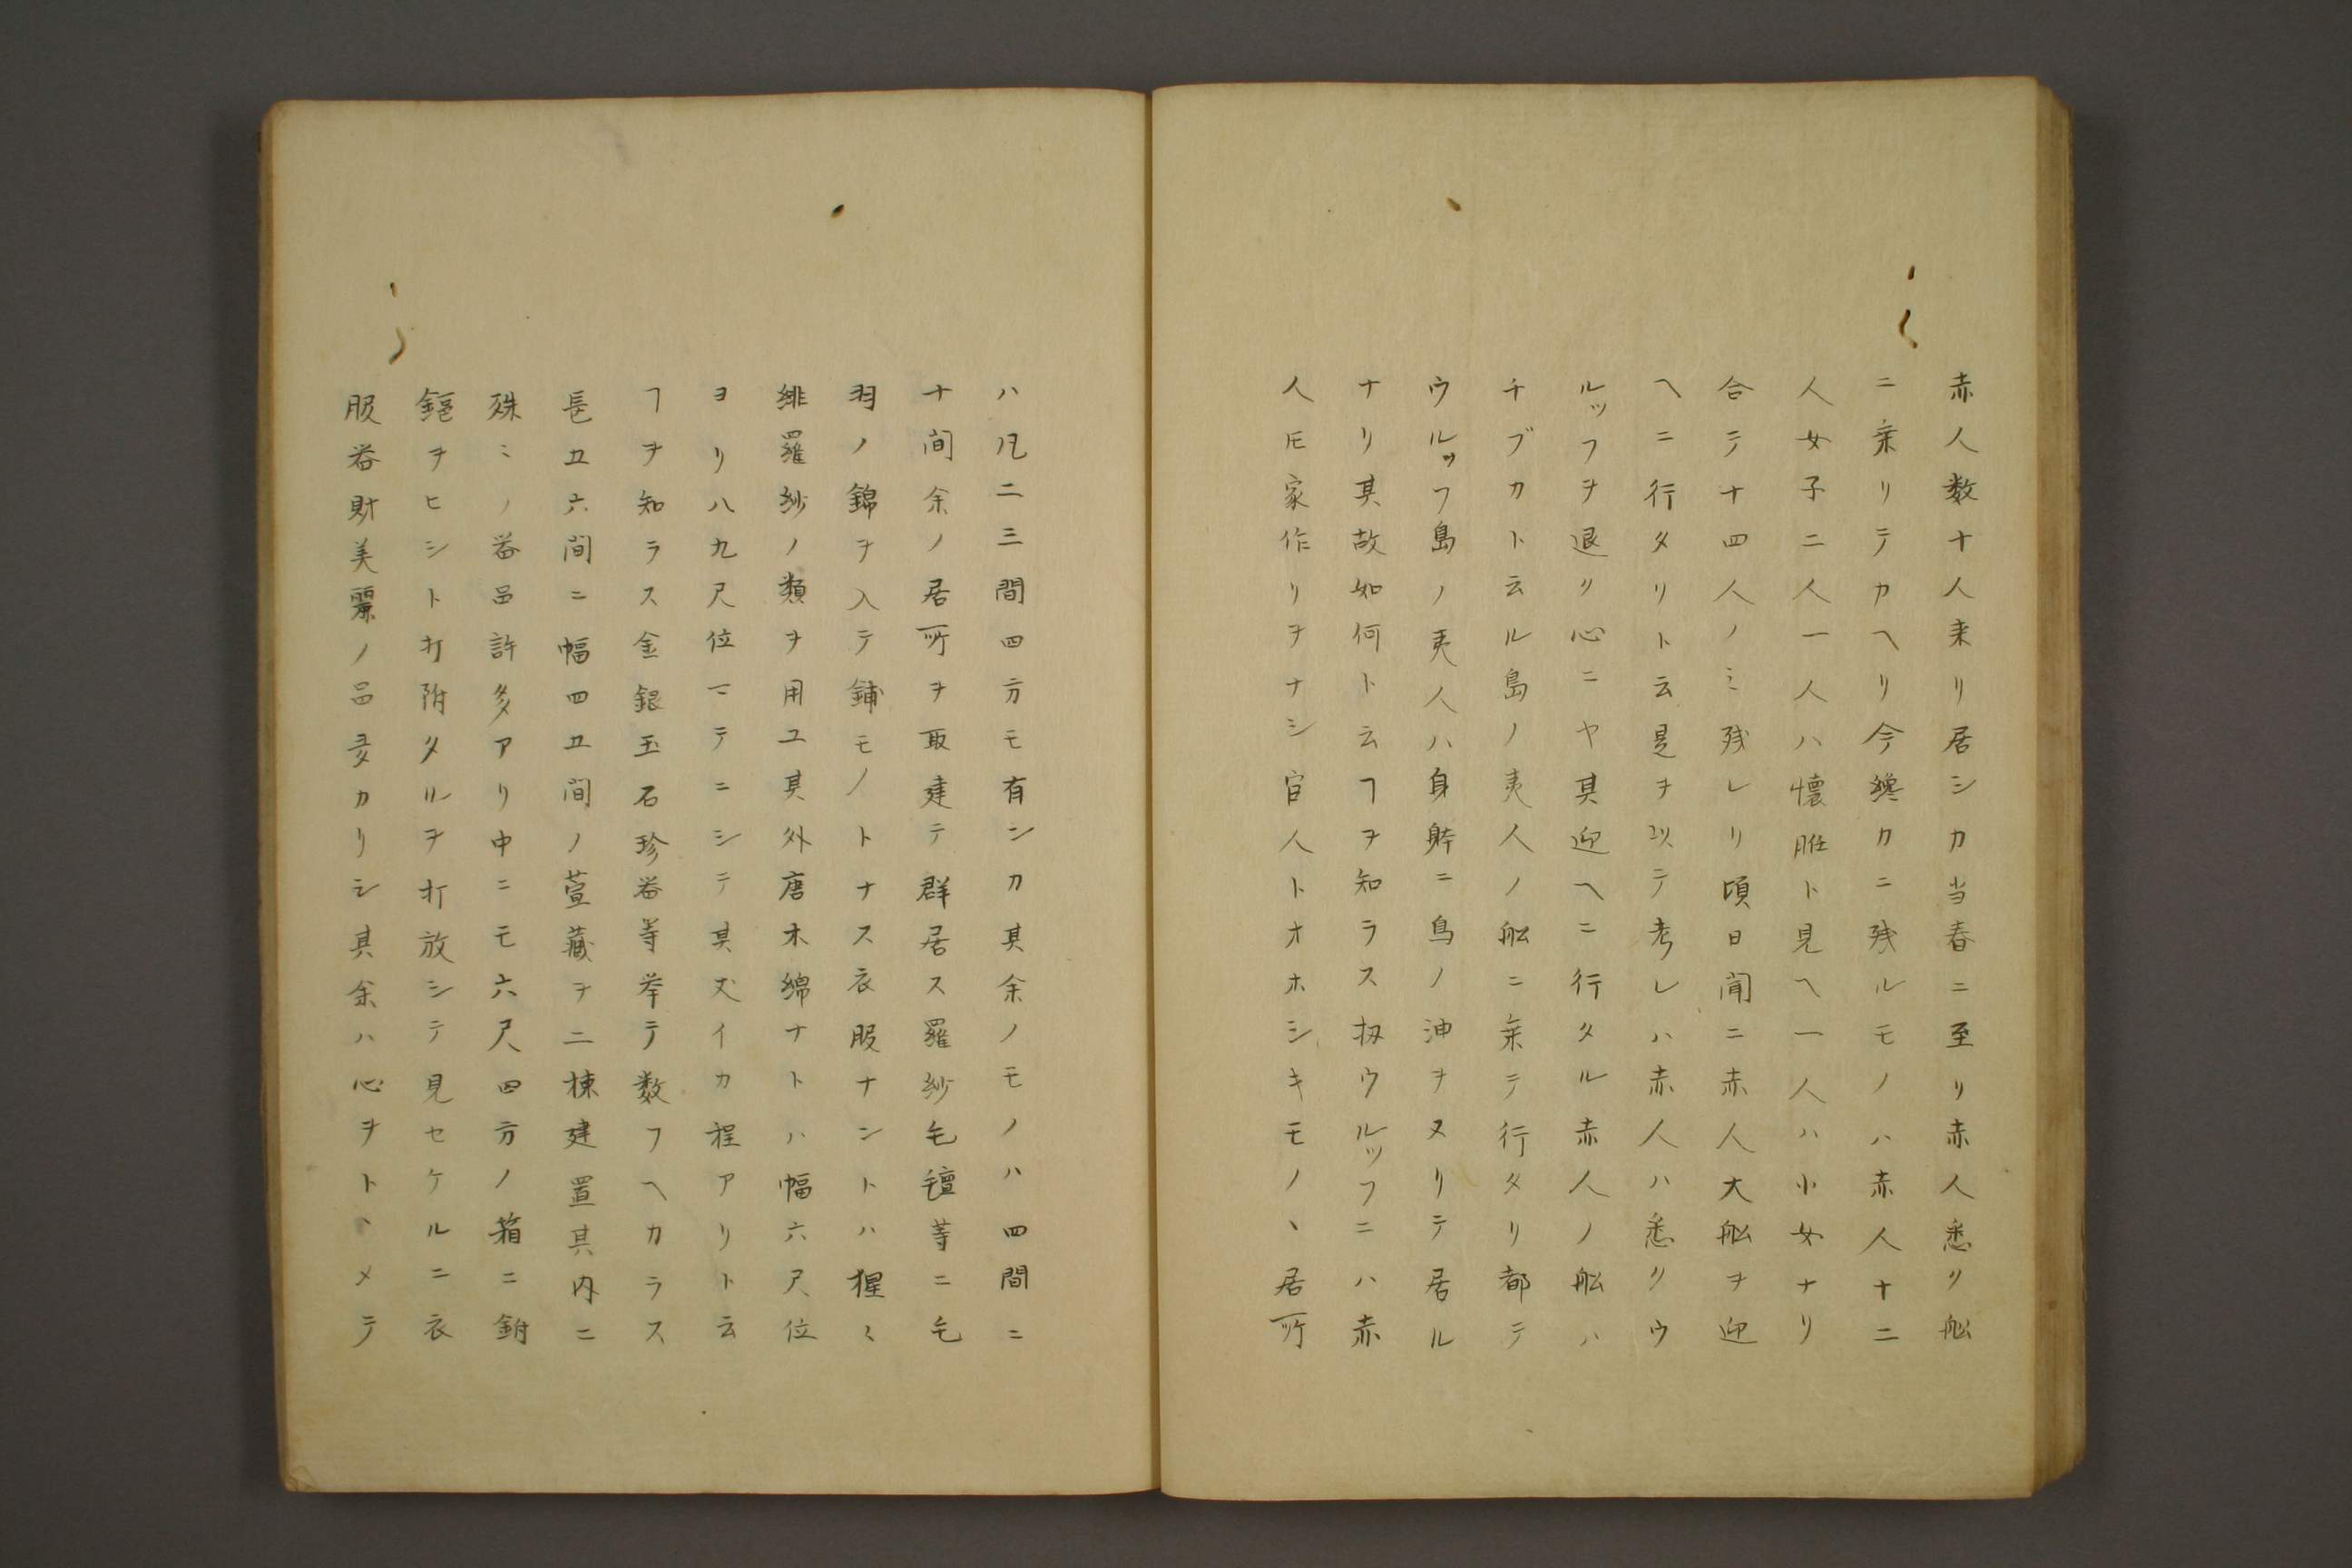 赤人数十人来リ居シカ当春ニ至リ赤人悉リ舩
ニ乗リテカヘリ今纔カニ残ルモノハ赤人十二
人女子二人一人ハ懐胎ト見ヘ一人ハ小女ナリ
合テ十四人ノミ残レリ頃日聞ニ赤人大舩ヲ迎
ヘニ行タリト云是ヲ以テ考レハ赤人ハ悉リウ
ルッフヲ退リ心ニヤ其迎ヘニ行タル赤人ノ舩ハ
チブカト云ル島ノ夷人ノ舩ニ乗テ行タリ都テ
ウルッフ島ノ夷人ハ身躰ニ鳥ノ油ヲヌリテ居ル
ナリ其故如何ト云フヲ知ラス扨ウルッフニハ赤
人𪜈家作リヲナシ官人トオホシキモノヽ居所
ハ凡二三間四方モ有ンカ其余ノモノハ四間ニ
十間余ノ居所ヲ取建テ群居ス羅紗毛氈等ニ毛
羽ノ錦ヲ入テ鋪モノトナス衣服ナントハ猩〻
緋羅紗ノ類ヲ用ユ其外唐木綿ナトハ幅六尺位
ヨリ八九尺位マテニシテ其丈イカ程アリト云
ヿヲ知ラス金銀玉石珍器等挙テ数フヘカラス
長五六間ニ幅四五間ノ萱藏ヲ二棟建置其内ニ
殊ミノ器品許多アリ中ニモ六尺四方ノ箱ニ
ヲヒシト打附タルヲ打放シテ見セケルニ衣
服器財美麗ノ品多カリシ其余ハ心ヲトヽメテ